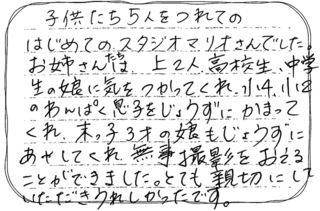 子供たち5人をつれての
はじめての、スタジオマリオさんでした。
お姉さんたちは 上2人、高校生、中学
生の娘に気をつかってくれ、小4、小2
のわんぱく息子をじょうずにかまって
くれ、末っ子3才の娘もじょうずに
あやしてくれ 無事撮影をおえる
ことができました。とても 親切にして
いただきうれしかったです。